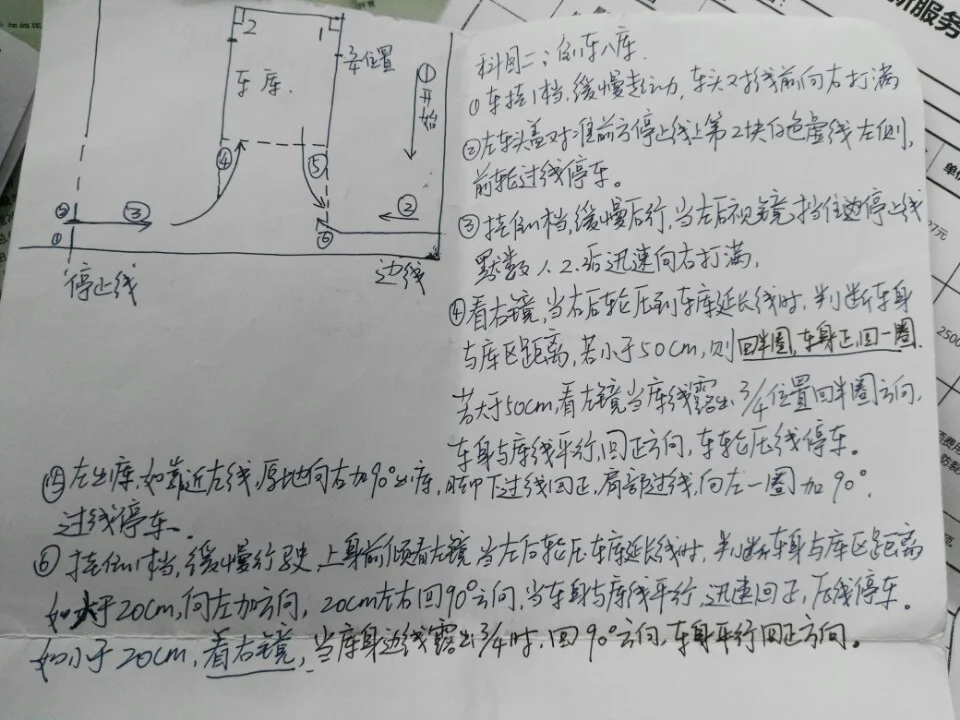 2
1
车库.
车位置
①开始
④
⑤
②
③
②
①
⑥
停止线
边线
科目二：倒车入库.
①车挂1档,缓慢起动,车头对线前向右打满
②左车头盖对准前方停止线上第2块白色虚线左侧,
前轮过线停车。
③挂倒1档,缓慢后行,当左后视镜挡住边停止线
默数1.2.后迅速向右打满,
④看右镜,当右后轮压到车库延长线时,判断车身
与库区距离,若小于50cm,则回半圈,车身正,回一圈.
若大于50cm,看左镜当库线露出3/4位置回半圈方向,
车身与库线平行,回正方向,车轮压线停车。
⑤左出库,如靠近左线,原地向右加90°出库,脚下过线回正,肩部过线,向左一圈加90°,
过线停车.
⑥挂倒1档,缓慢行驶,上身前倾看左镜 当左后轮压车库延长线时,判断车身与库区距离
如大于20cm,向左加方向,20cm左右回90°方向,当车身与库线平行,迅速回正,压线停车。
如小于20cm,看右镜,当库身边线露出3/4时,回90°方向,车身平行回正方向。
新服务
单位
97元
2500